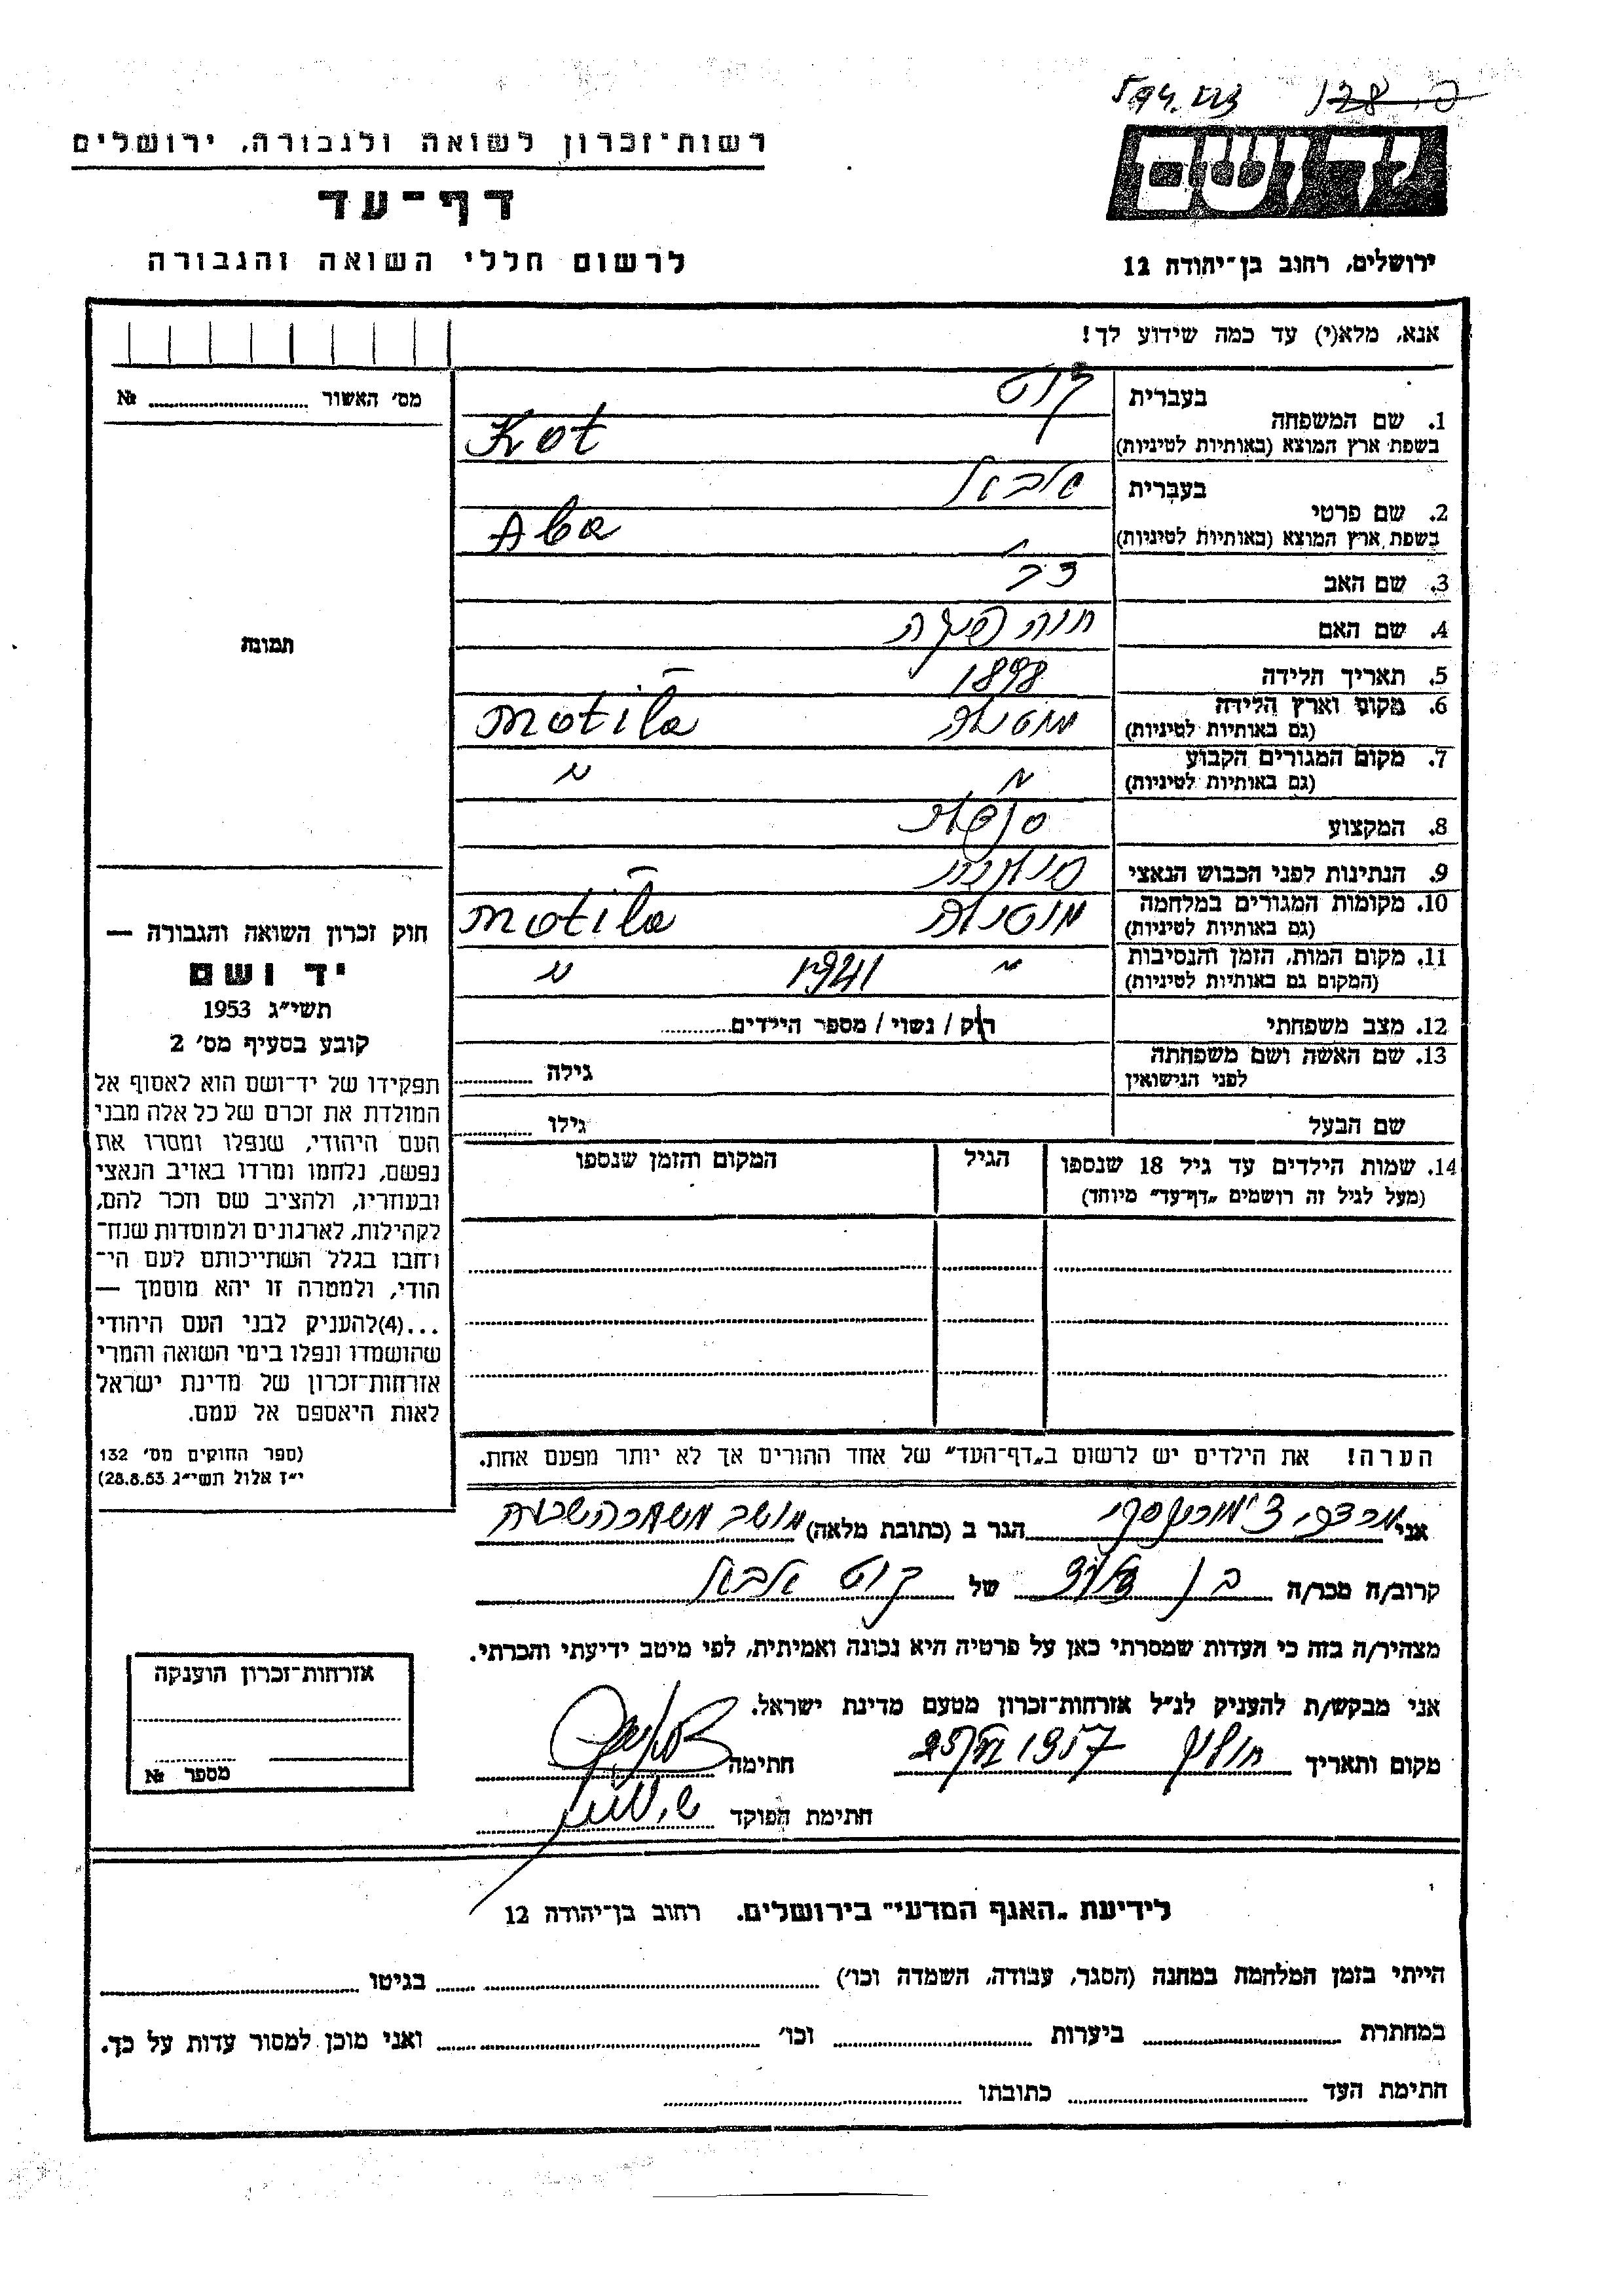 רשות־זכרון לשואה ולגבורה, ירושלים
דף־עד
לרשום חללי השואה והגבורה
128
יד ושם
ירושלים, רחוב בן־יהודה 12
אנא, מלא(י) עד כמה שידוע לך!
מס׳ האשור № 
תמונה
1. שם המשפחה
בעברית קוט
בשפת ארץ המוצא (באותיות לטיניות) Kot
2. שם פרטי
בעברית אבא
בשפת ארץ המוצא (באותיות לטיניות) Aba
3. שם האב
4. שם האם חוה
5. תאריך הלידה 1898
6. מקום וארץ הלידה
(גם באותיות לטיניות) motila
7. מקום המגורים הקבוע
(גם באותיות לטיניות) "
8. המקצוע
9. הנתינות לפני הכבוש הנאצי
10. מקומות המגורים במלחמה
(גם באותיות לטיניות) motila
11. מקום המות, הזמן והנסיבות " 1941 "
(המקום גם באותיות לטיניות)
12. מצב משפחתי רוק / נשוי / מספר הילדים
13. שם האשה ושם משפחתה
לפני הנישואין גילה
שם הבעל גילו
14. שמות הילדים עד גיל 18 שנספו הגיל המקום והזמן שנספו
(מעל לגיל זה רושמים „דף־עד״ מיוחד)
חוק זכרון השואה והגבורה —
יד ושם
תשי״ג 1953
קובע בסעיף מס׳ 2
תפקידו של יד־ושם הוא לאסוף אל
המולדת את זכרם של כל אלה מבני
העם היהודי, שנפלו ומסרו את
נפשם, נלחמו ומרדו באויב הנאצי
ובעוזריו, ולהציב שם וזכר להם,
לקהילות, לארגונים ולמוסדות שנח־
רחבו בגלל השתייכותם לעם הי־
הודי, ולמטרה זו יהא מוסמך —
...(4)להעניק לבני העם היהודי
שהושמדו ונפלו בימי השואה והמרי
אזרחות־זכרון של מדינת ישראל
לאות היאספם אל עמם.
(ספר החוקים מס׳ 132
י״ז אלול תשי״ג 28.8.53)
הערה! את הילדים יש לרשום ב„דף־העד״ של אחד ההורים אך לא יותר מפעם אחת.
אני מרדכי הגר ב (כתובת מלאה) מושב
קרוב/ה מכר/ה בן של קוט אבא
מצהיר/ה בזה כי העדות שמסרתי כאן על פרטיה היא נכונה ואמיתית, לפי מיטב ידיעתי והכרתי.
אני מבקש/ת להעניק לנ״ל אזרחות־זכרון מטעם מדינת ישראל.
מקום ותאריך 1957 חתימה
חתימת הפוקד
אזרחות־זכרון הוענקה
מספר №
לידיעת „האגף המדעי״ בירושלים, רחוב בן־יהודה 12
הייתי בזמן המלחמה במחנה (הסגר, עבודה, השמדה וכו׳) בגיטו
במחתרת ביערות וכו׳ ואני מוכן למסור עדות על כך.
חתימת העד כתובתו